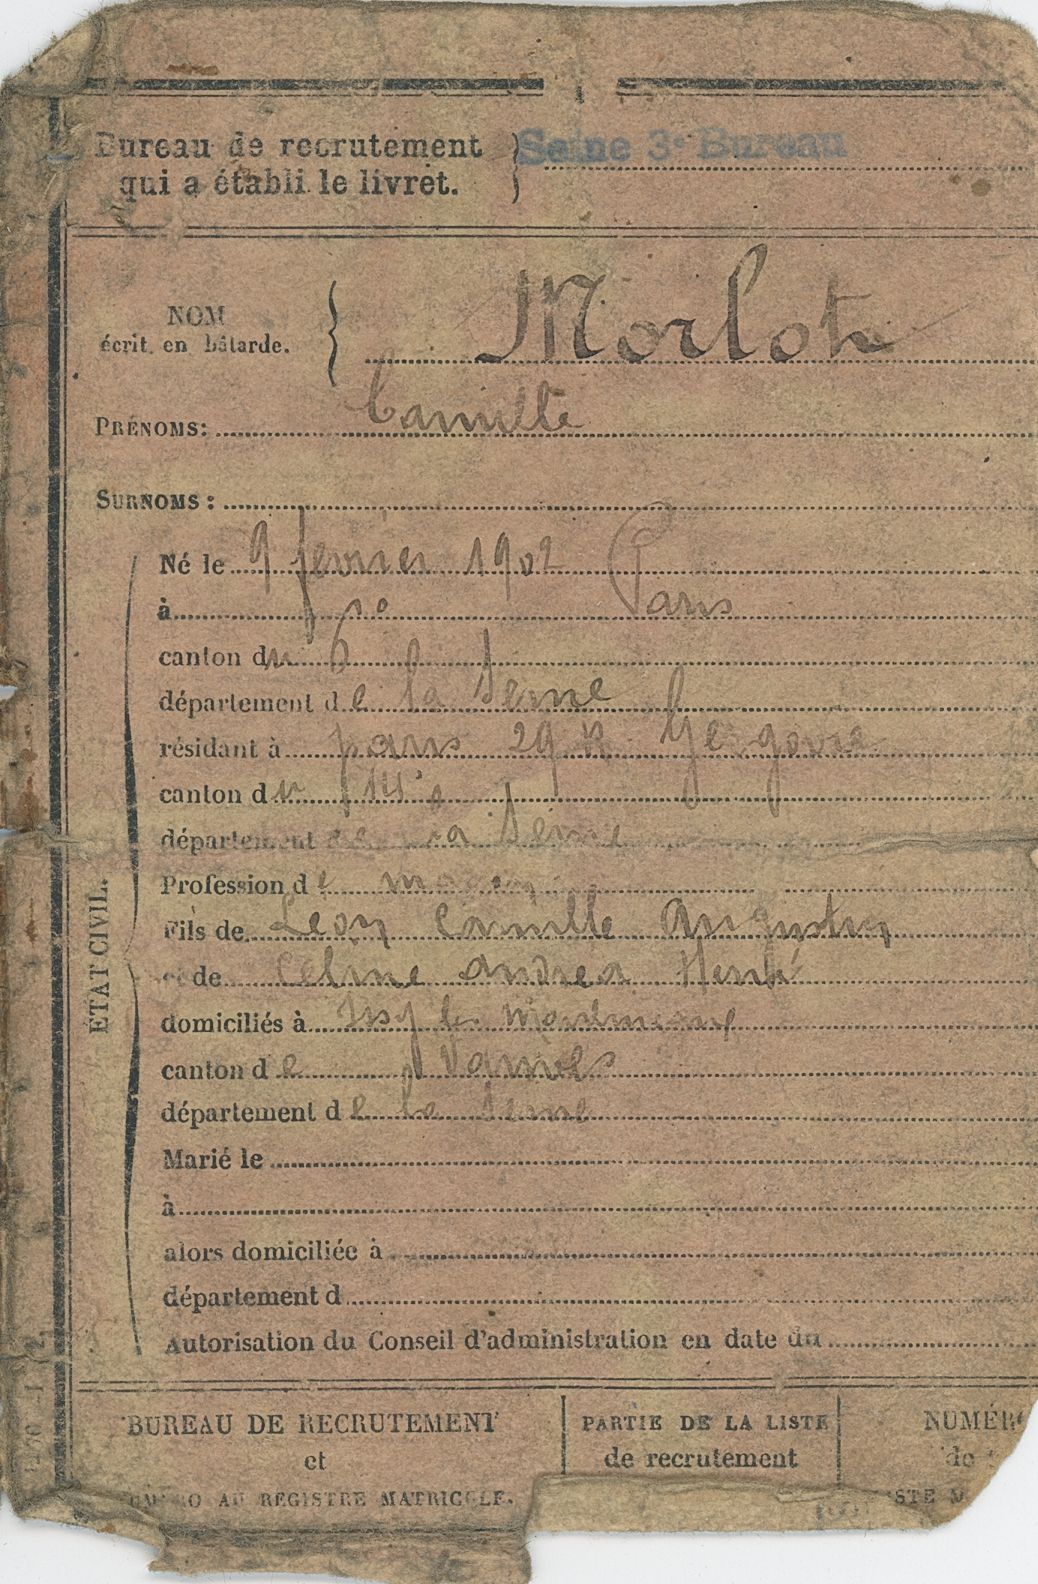 Bureau de recrutement
qui a établi le livret. } Seine 3e Bureau
NOM
écrit en bâtarde. } Morlot
PRÉNOMS: Camille
SURNOMS:
Né le 9 février 1902
à Paris
canton du 6e
département de la Seine
résidant à paris 29 R Gergovie
canton du 14e
département de la Seine
Profession de
Fils de Léon Camille Augustin
et de Céline Andréa
domiciliés à Issy les Moulineaux
canton de Vanves
département de la Seine
Marié le
à
alors domiciliée à
département d
Autorisation du Conseil d'administration en date du
ÉTAT CIVIL.
BUREAU DE RECRUTEMENT
et
NUMÉRO AU REGISTRE MATRICULE.
PARTIE DE LA LISTE
de recrutement
NUMÉRO
de
LISTE